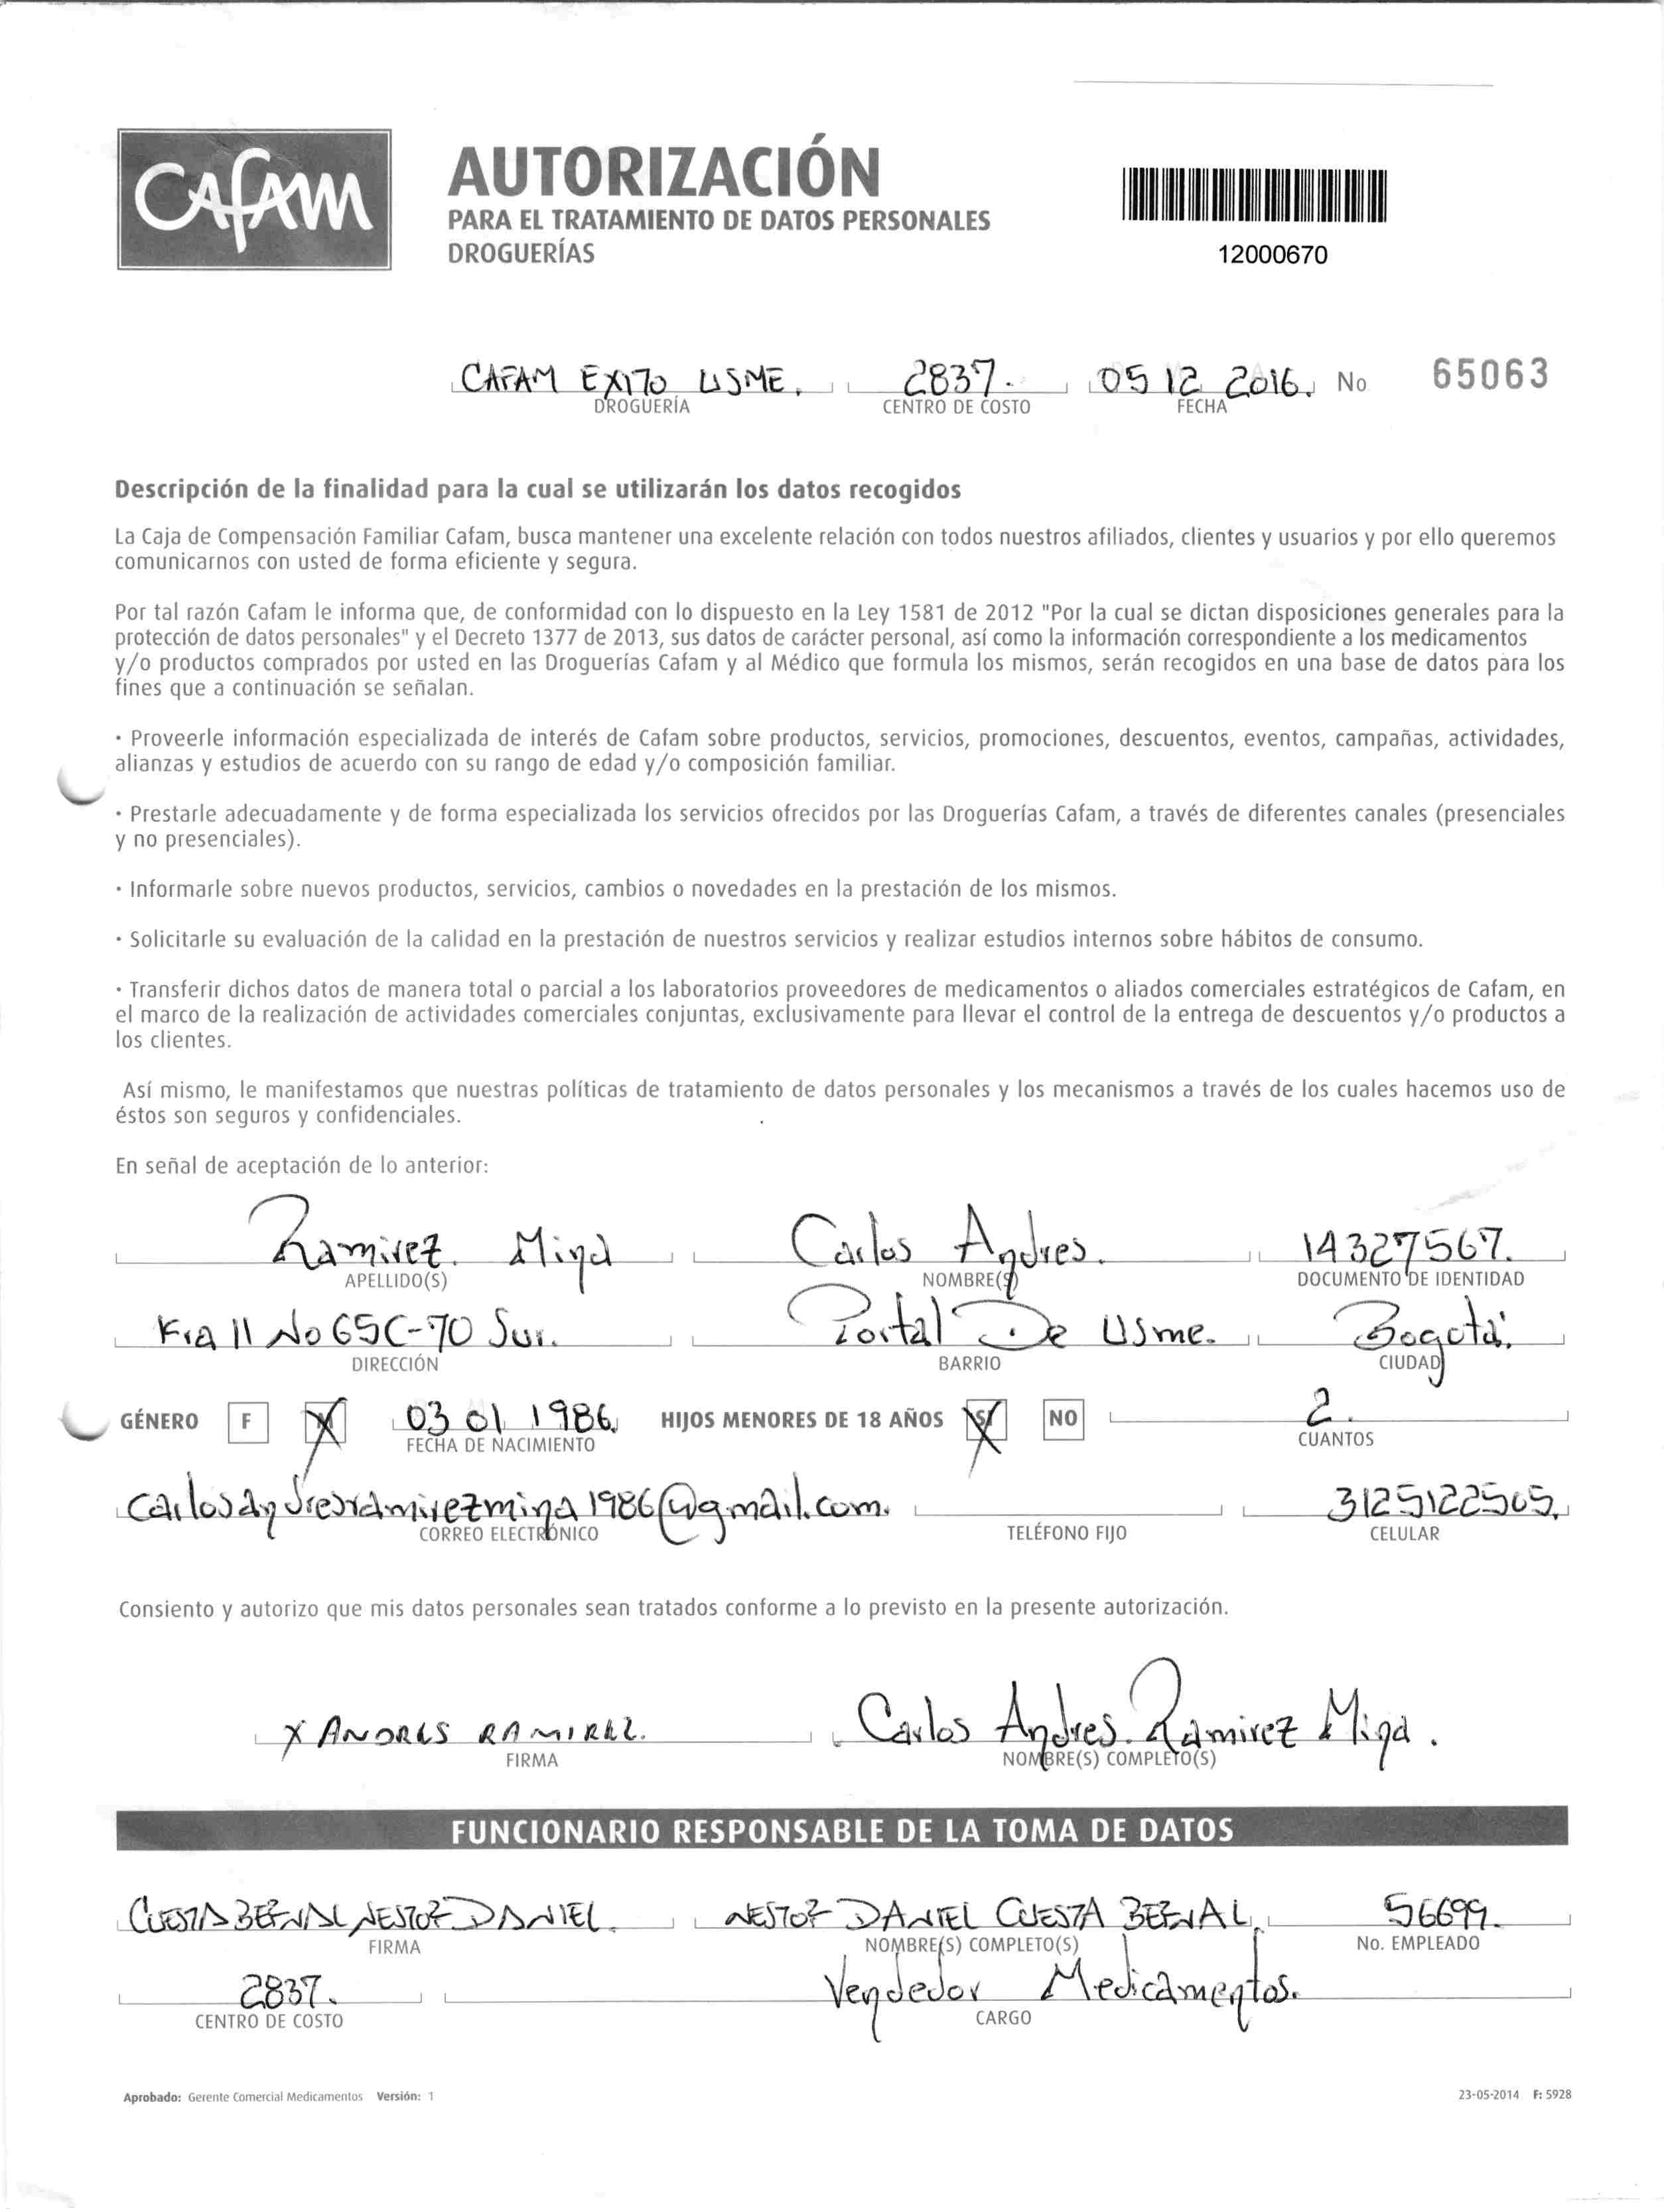 Cafam
AUTORIZACIÓN
PARA EL TRATAMIENTO DE DATOS PERSONALES
DROGUERÍAS
12000670
CAFAM EXITO USME. 2837. 05 12 2016. No 65063
DROGUERÍA CENTRO DE COSTO FECHA
Descripción de la finalidad para la cual se utilizarán los datos recogidos
La Caja de Compensación Familiar Cafam, busca mantener una excelente relación con todos nuestros afiliados, clientes y usuarios y por ello queremos
comunicarnos con usted de forma eficiente y segura.
Por tal razón Cafam le informa que, de conformidad con lo dispuesto en la Ley 1581 de 2012 "Por la cual se dictan disposiciones generales para la
protección de datos personales" y el Decreto 1377 de 2013, sus datos de carácter personal, así como la información correspondiente a los medicamentos
y/o productos comprados por usted en las Droguerías Cafam y al Médico que formula los mismos, serán recogidos en una base de datos para los
fines que a continuación se señalan.
· Proveerle información especializada de interés de Cafam sobre productos, servicios, promociones, descuentos, eventos, campañas, actividades,
alianzas y estudios de acuerdo con su rango de edad y/o composición familiar.
· Prestarle adecuadamente y de forma especializada los servicios ofrecidos por las Droguerías Cafam, a través de diferentes canales (presenciales
y no presenciales).
· Informarle sobre nuevos productos, servicios, cambios o novedades en la prestación de los mismos.
· Solicitarle su evaluación de la calidad en la prestación de nuestros servicios y realizar estudios internos sobre hábitos de consumo.
· Transferir dichos datos de manera total o parcial a los laboratorios proveedores de medicamentos o aliados comerciales estratégicos de Cafam, en
el marco de la realización de actividades comerciales conjuntas, exclusivamente para llevar el control de la entrega de descuentos y/o productos a
los clientes.
Así mismo, le manifestamos que nuestras políticas de tratamiento de datos personales y los mecanismos a través de los cuales hacemos uso de
éstos son seguros y confidenciales.
En señal de aceptación de lo anterior:
Ramirez. Mina Carlos Andres. 14327567.
APELLIDO(S) NOMBRE(S) DOCUMENTO DE IDENTIDAD
Kra 11 No 65C-70 Sur. Portal De Usme. Bogotá.
DIRECCIÓN BARRIO CIUDAD
GÉNERO F M 03 01 1986. HIJOS MENORES DE 18 AÑOS SI NO 2.
FECHA DE NACIMIENTO CUANTOS
carlosandresramirezmina1986@gmail.com. 3125122505.
CORREO ELECTRÓNICO TELÉFONO FIJO CELULAR
Consiento y autorizo que mis datos personales sean tratados conforme a lo previsto en la presente autorización.
X ANDRES RAMIREZ. Carlos Andres Ramirez Mina.
FIRMA NOMBRE(S) COMPLETO(S)
FUNCIONARIO RESPONSABLE DE LA TOMA DE DATOS
CUESTA BERNAL NESTOR DANIEL. NESTOR DANIEL CUESTA BERNAL. 56699.
FIRMA NOMBRE(S) COMPLETO(S) No. EMPLEADO
2837. Vendedor Medicamentos.
CENTRO DE COSTO CARGO
Aprobado: Gerente Comercial Medicamentos Versión: 1 23-05-2014 F: 5928